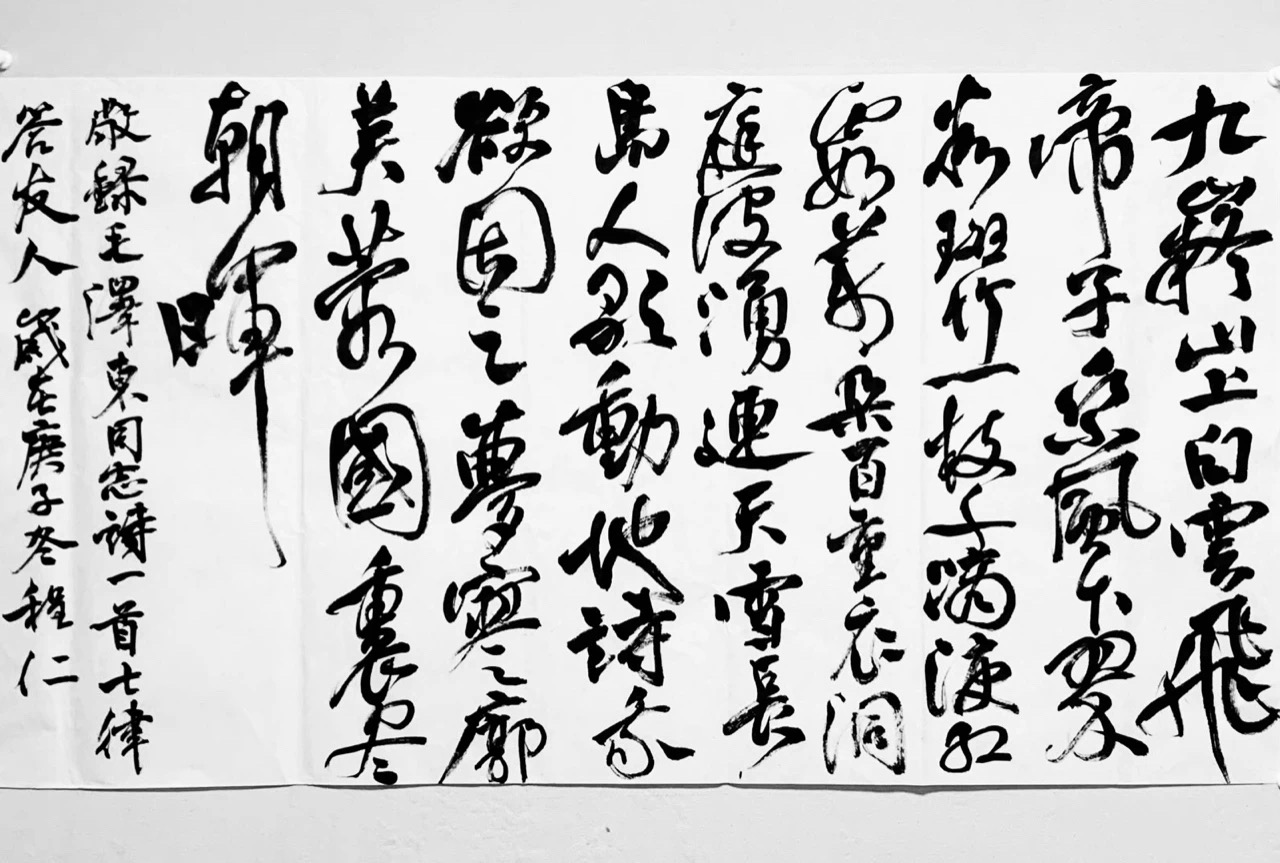 九嶷山上白雲飛
帝子乘風下翠
微斑竹一枝千滴淚紅
霞萬朵百重衣洞
庭波湧連天雪長
島人歌動地詩我
欲因之夢寥廓
芙蓉國裏尽
朝暉
敬録毛澤東同志詩一首七律
答友人 歲在庚子冬程仁